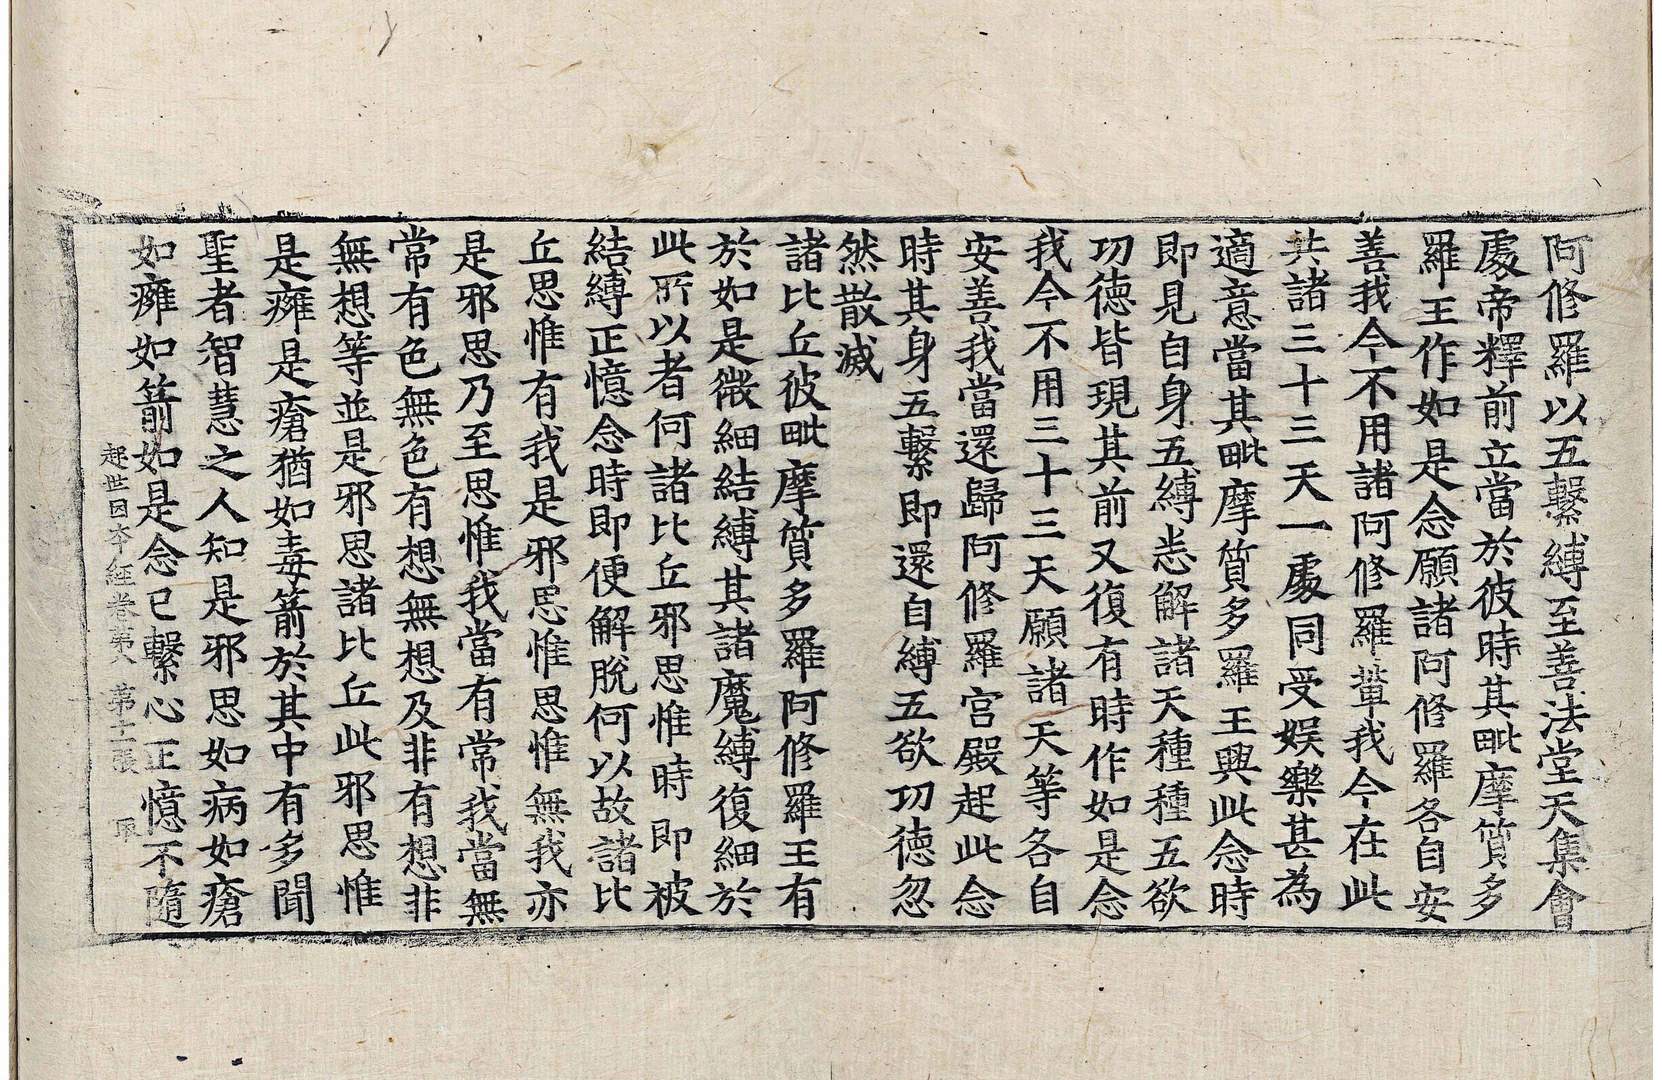 阿修羅以五繫縛至善法堂天集會
處帝釋前立當於彼時其毗摩質多
羅王作如是念願諸阿修羅各自安
善我今不用諸阿修羅輩我今在此
共諸三十三天一處同受娛樂甚為
適意當其毗摩質多羅王興此念時
即見自身五縛悉解諸天種種五欲
功德皆現其前又復有時作如是念
我今不用三十三天願諸天等各自
安善我當還歸阿修羅宮殿起此念
時其身五繫即還自縛五欲功德忽
然散滅
諸比丘彼毗摩質多羅阿修羅王有
於如是微細結縛其諸魔縛復細於
此所以者何諸比丘邪思惟時即被
結縛正憶念時即便解脫何以故諸比
丘思惟有我是邪思惟思惟無我亦
是邪思乃至思惟我當有常我當無
常有色無色有想無想及非有想非
無想等並是邪思諸比丘此邪思惟
是癰是瘡猶如毒箭於其中有多聞
聖者智慧之人知是邪思如病如瘡
如癰如箭如是念已繫心正憶不隨
起世因本經卷第八 第十二張 取